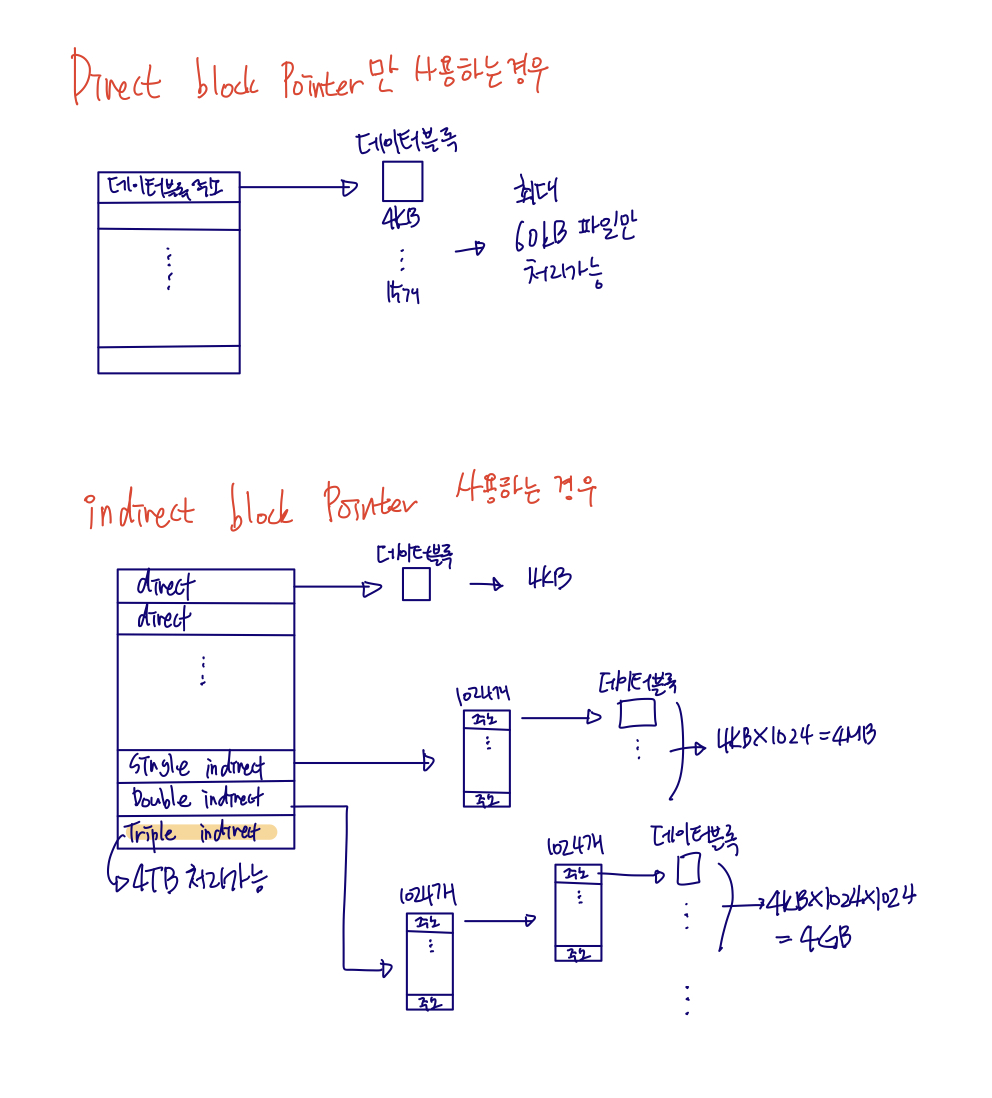 Direct block Pointer만 사용하는경우
데이터블록
데이터블록 주소
4KB
15개
최대
60kB 파일만
처리가능
indirect block Pointer 사용하는 경우
데이터블록
direct
4KB
direct
1024개
데이터블록
주소
4KB×1024=4MB
Single indirect
주소
Double indirect
Triple indirect
4TB 처리가능
1024개
데이터블록
1024개
주소
4KB×1024×1024
= 4GB
주소
주소
주소